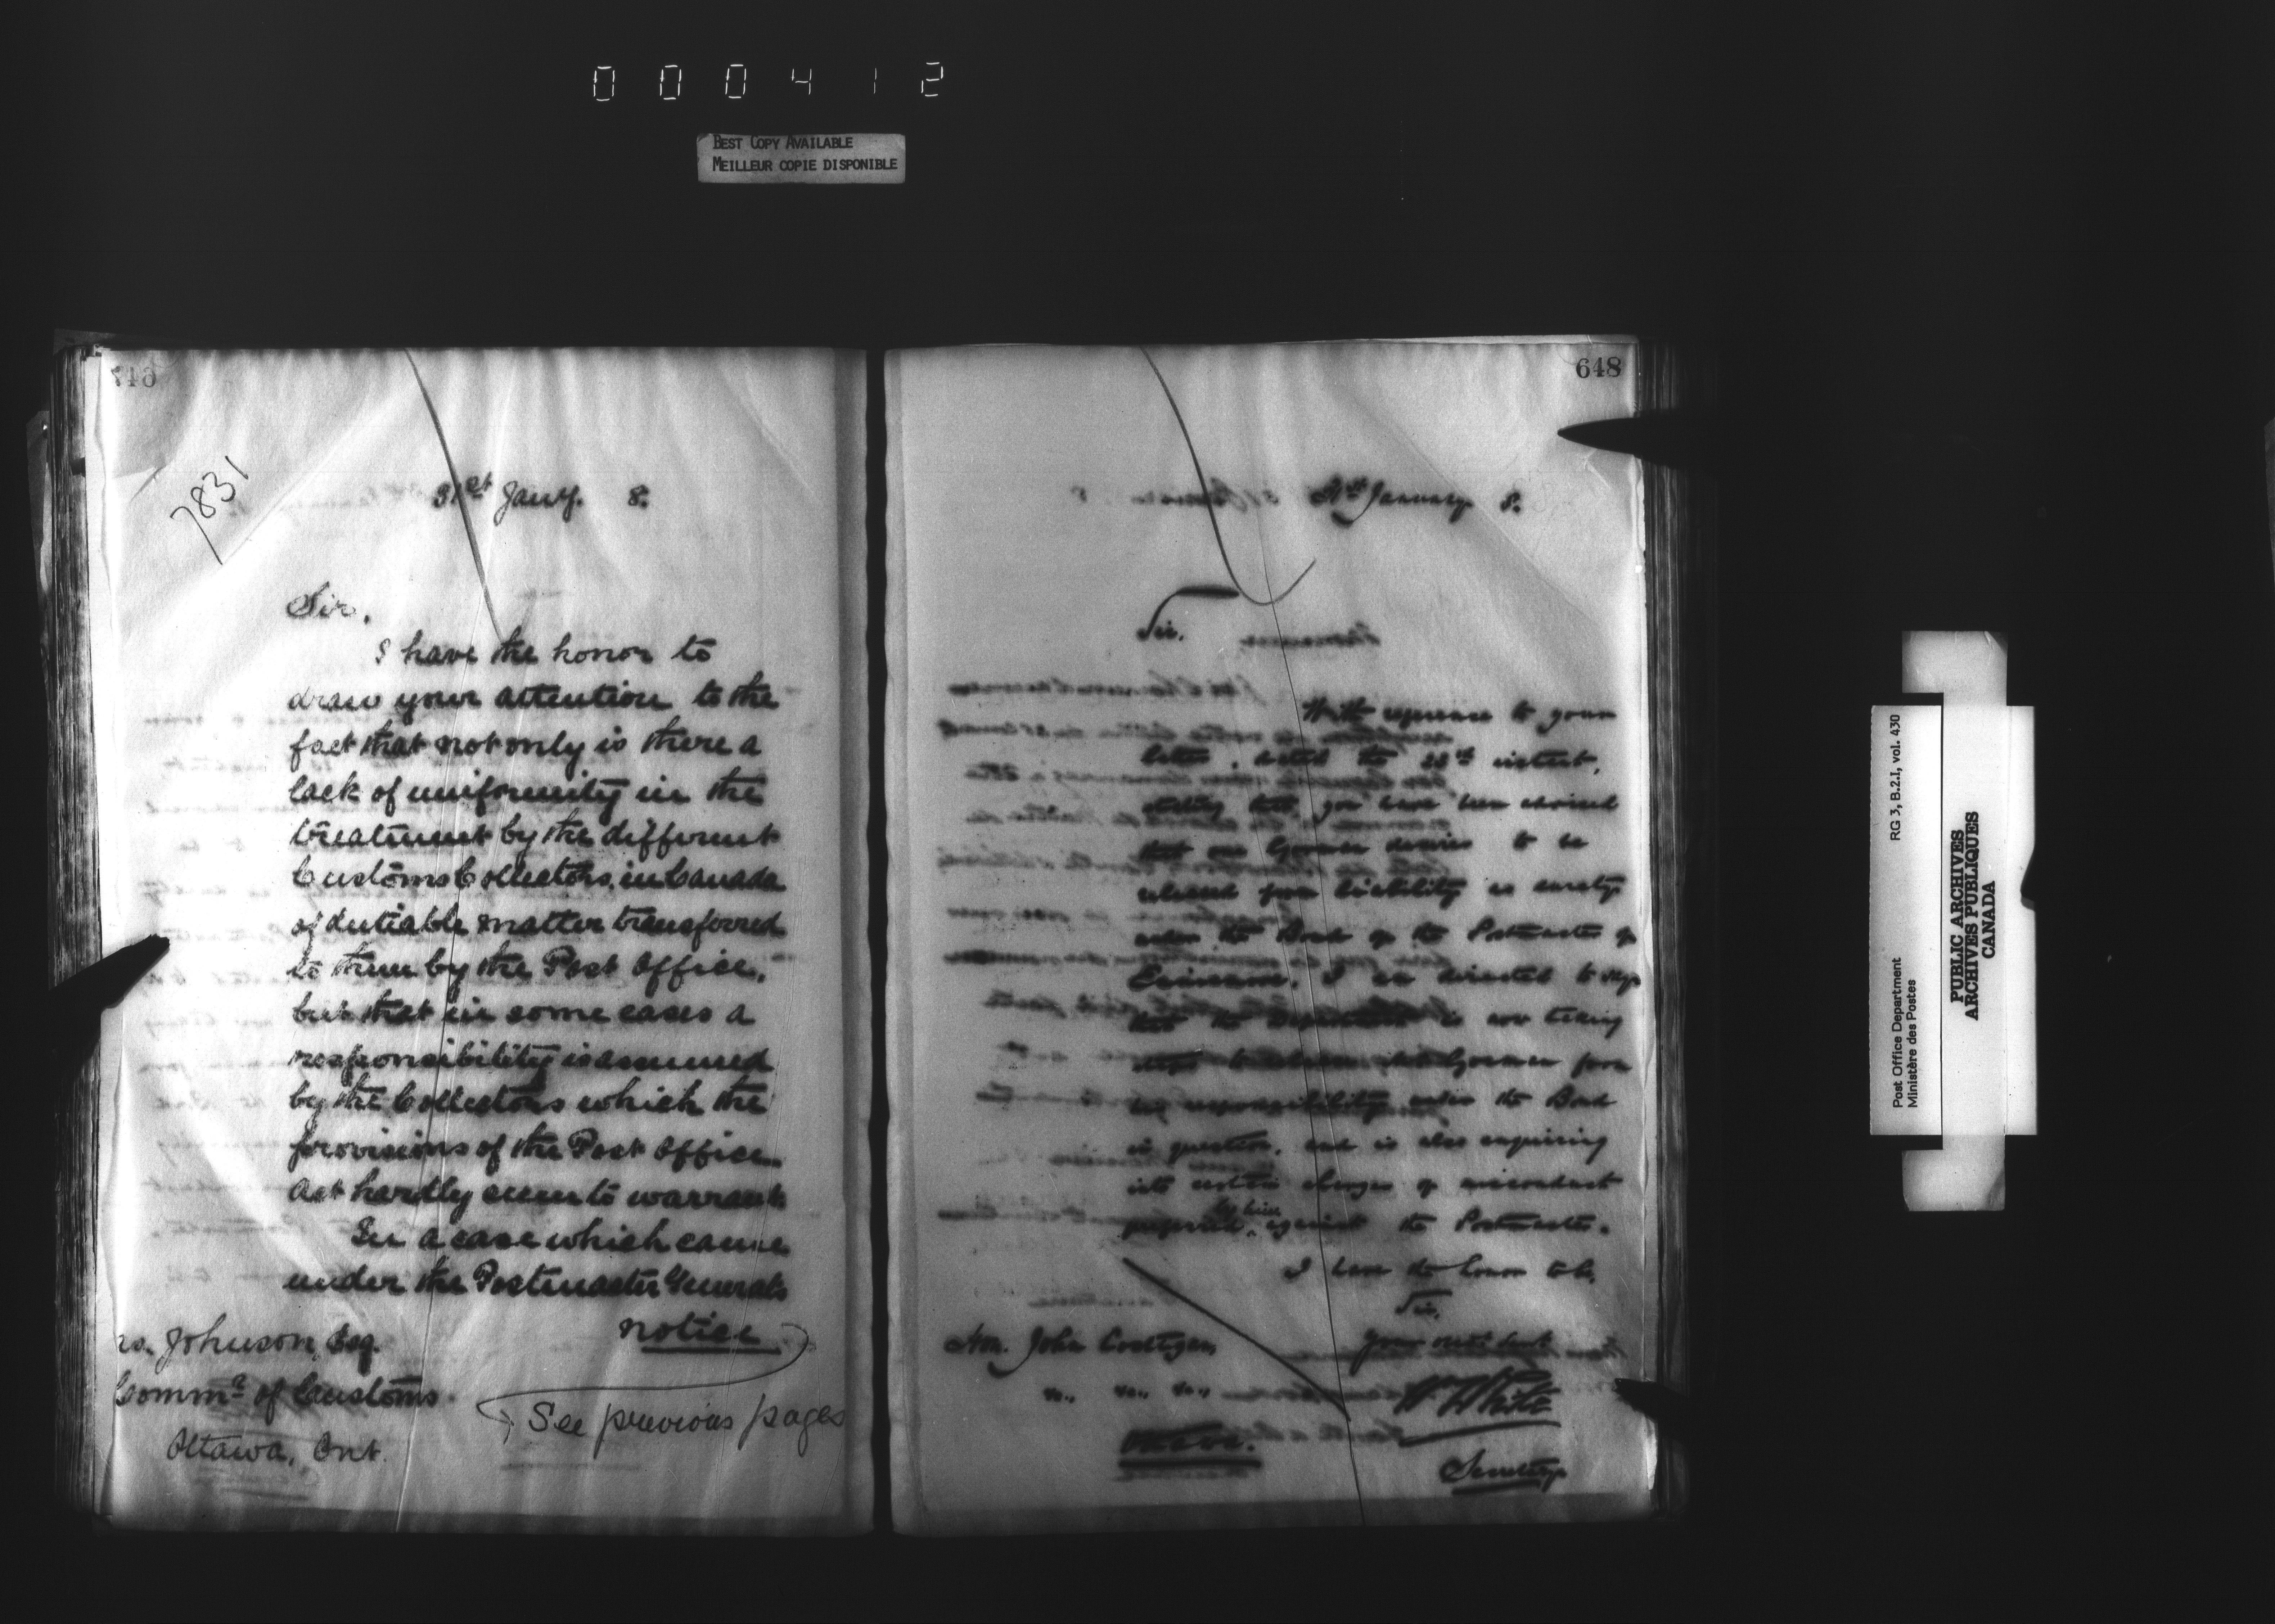 000412
BEST COPY AVAILABLE
MEILLEUR COPIE DISPONIBLE
7831
31st Jany. 8.
Sir,
I have the honor to
draw your attention to the
fact that not only is there a
lack of uniformity in the
treatment by the different
Customs Collectors, in Canada
of dutiable matter transferred
to them by the Post Office,
but that in some cases a
responsibility is assumed
by the Collectors which the
provisions of the Post Office
Act hardly seem to warrant
In a case which came
under the Postmaster Generals
notice
Johnson, Esq.
Commr of Customs
Ottawa, Ont.
See previous pages
648
31st January 8.
Sir.
With reference to your
letter, dated the 28th instant,
stating that you have been advised
that one Gorman desires to be
released from liability as surety
under the Bond of the Postmaster of
I am directed to say
that the Department is now taking
steps to release Gorman from
his responsibility under the Bond
in question, and is also enquiring
into certain charges of misconduct
preferred by him against the Postmaster.
I have the honor to be,
Sir,
Your obdt Servt
White
Secretary
Hon. John Costigan,
&c., &c., &c.,
Ottawa.
Post Office Department
Ministère des Postes
RG 3, B.2.I, vol. 430
PUBLIC ARCHIVES
ARCHIVES PUBLIQUES
CANADA